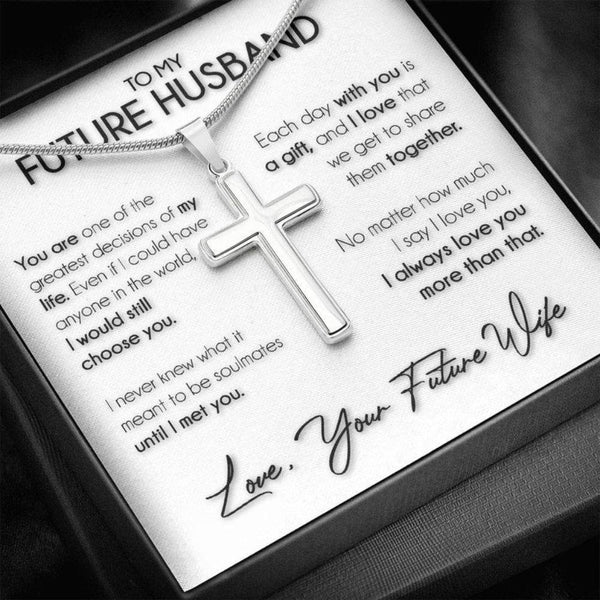 TO MY
FUTURE HUSBAND
You are one of the
greatest decisions of my
life. Even if I could have
anyone in the world,
I would still
choose you.
I never knew what it
meant to be soulmates
until I met you.
Each day with you is
a gift, and I love that
we get to share
them together.
No matter how much
I say I love you,
I always love you
more than that.
Love, Your Future Wife